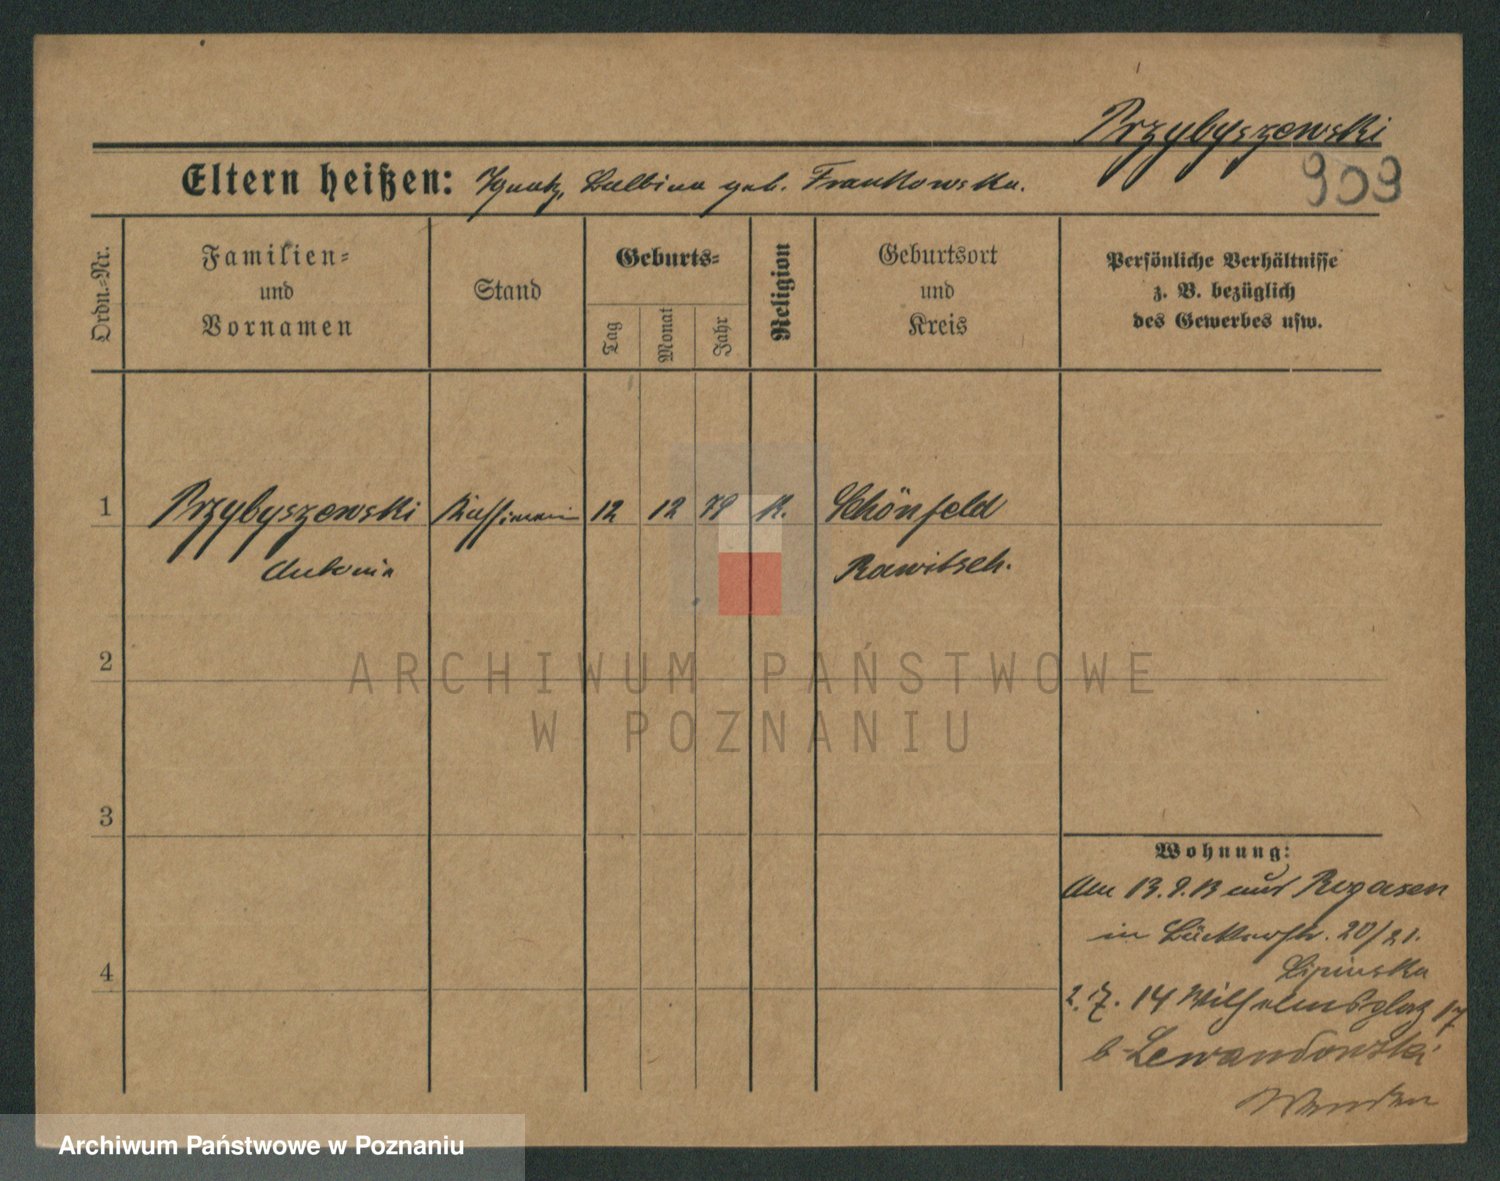 Przybyszewski
909
Eltern heißen: Ignatz, Balbina geb. Frankowska.
Ordn.-Nr.
Familien-
und
Vornamen
Stand
Geburts-
Tag
Monat
Jahr
Religion
Geburtsort
und
Kreis
Persönliche Verhältnisse
z. B. bezüglich
des Gewerbes usw.
1 Przybyszewski 12 12 79 K. Schönfeld
Antonia Rawitsch.
2
3
4
Wohnung:
Am 13.9.13 aus Rogasen
in Bäckerstr. 20/21.
Lipinska
2. 7. 14 Wilhelmsplatz 17
b Lewandowski
Wenden
ARCHIWUM PAŃSTWOWE
W POZNANIU
Archiwum Państwowe w Poznaniu